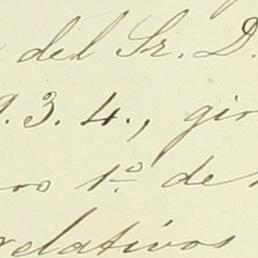 del Sr. D.
9.3.4., gir
ro 1º de
relativos